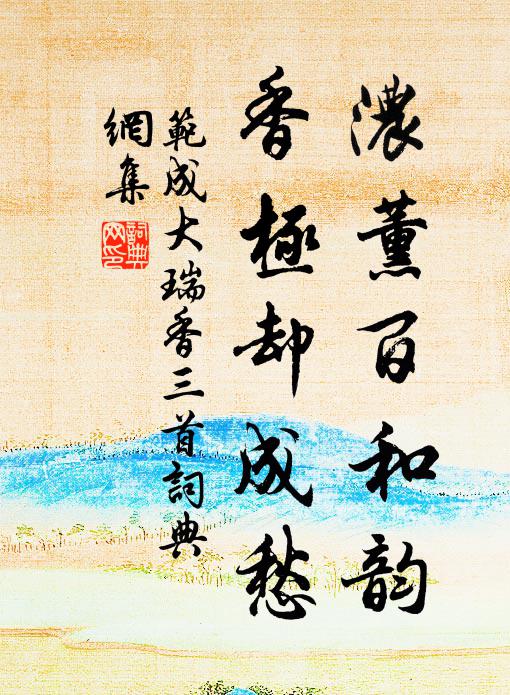 濃薰百和韵
香極却成愁
範成大瑞香三首詞典
網集
詞典網印